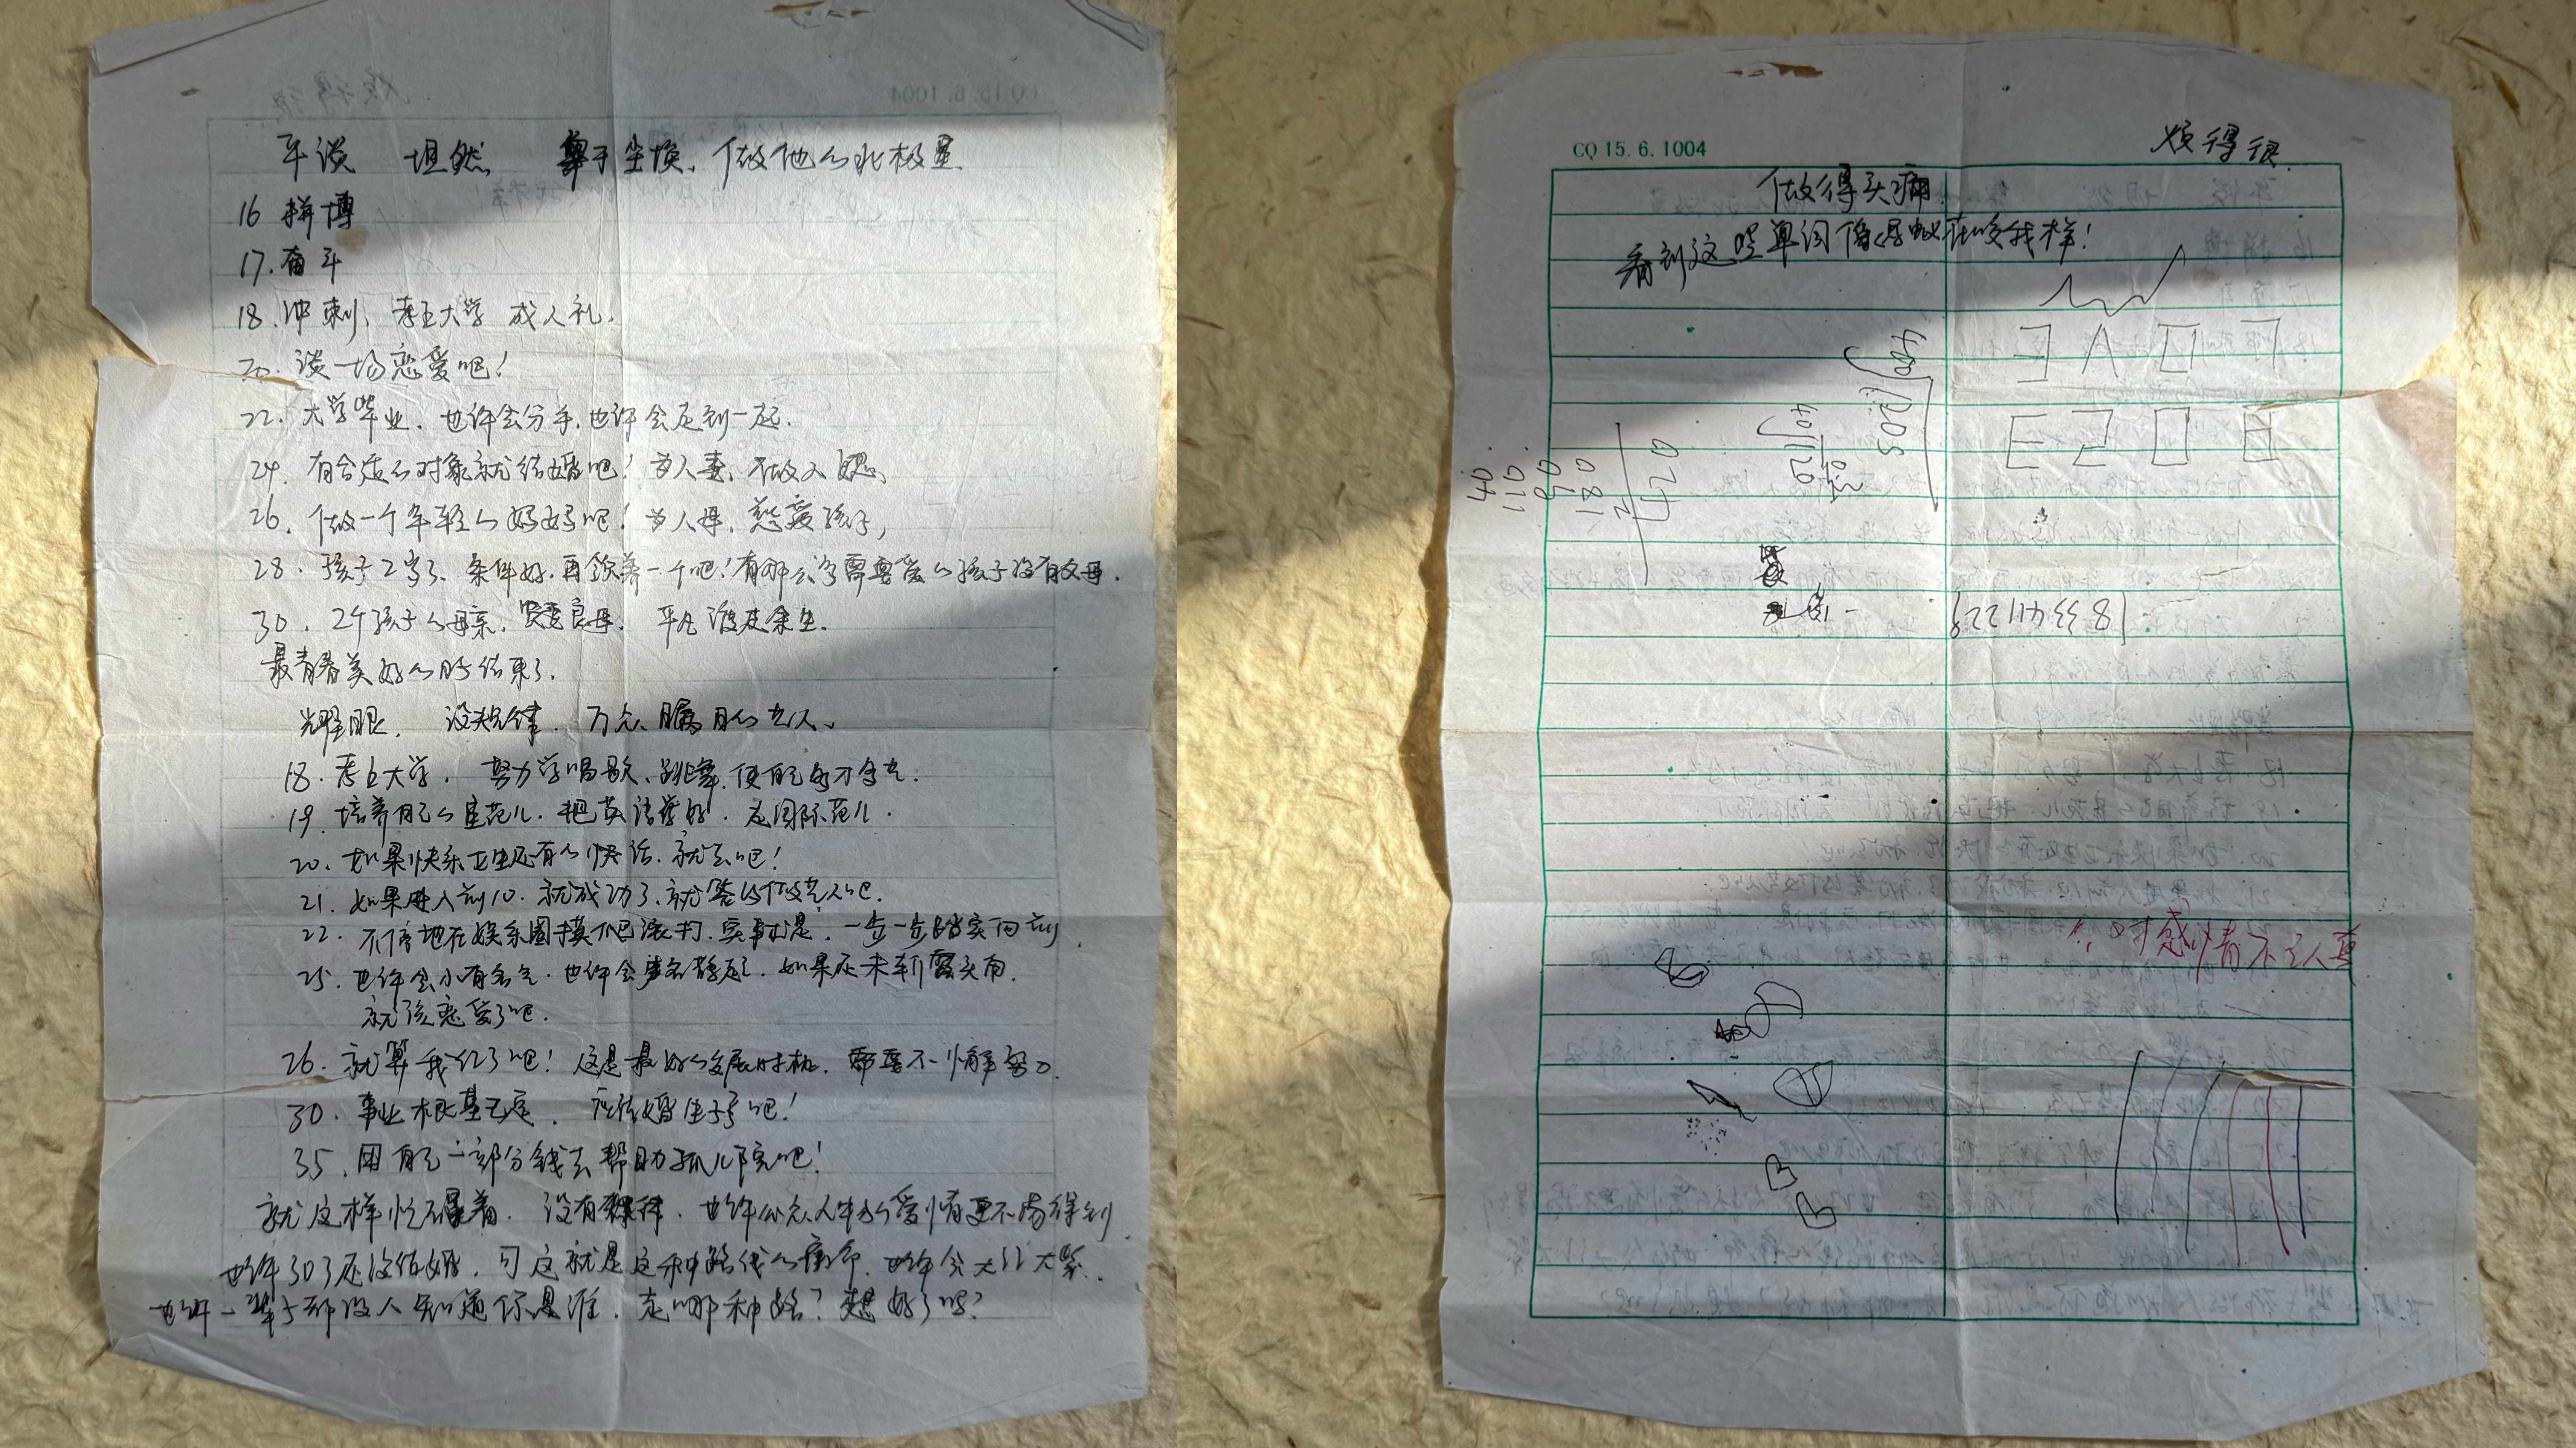 平谈 坦然 卑于尘埃、做他的北极星
16 拼博
17. 奋斗
18. 冲刺、考上大学 成人礼.
20. 谈一场恋爱吧!
22. 大学毕业. 也许会分手. 也许会走到一起.
24. 有合适的对象就结婚吧! 为人妻、不做人
26. 做一个年轻的妈妈吧! 为人母. 慈爱孩子,
28. 孩子2岁了、条件好. 再领养一个吧! 有那么多需要爱的孩子没有父母.
30. 2个孩子的母亲. 贤妻良母. 平凡渡过余生.
最青春美好的时结束了.
光耀眼. 没规律. 万众瞩目的艺人.
18. 考上大学. 努力学唱歌、跳舞. 使自己多才多艺.
19. 培养自己的星范儿. 把英语学好. 走国际范儿.
20. 如果快乐女生还有的话. 就去吧!
21. 如果进入前10. 就成功了. 就签约做艺人吧.
22. 不停地在娱乐圈摸爬滚打. 实事求是. 一步一步踏实向前.
25. 也许会小有名气. 也许会声名鹊起. 如果还未崭露头角.
就该恋爱了吧.
26. 就算我红了吧! 这是最好的发展时机. 都要不懈努力.
30. 事业根基已定. 应结婚生子了吧!
35. 用自己一部分钱去帮助孤儿院吧!
就这样忙碌着. 没有规律. 也许公众人生的爱情更不易得到.
也许30了还没结婚. 可这就是这种路线的宿命. 也许会大红大紫.
也许一辈子都没人知道你是谁. 走哪种路? 想好了吗?
CQ 15.6.1004
烦得很.
做得头痛!
看到这些单词像得蚊在咬我样!
40
110
90
180
420
对感情不认真